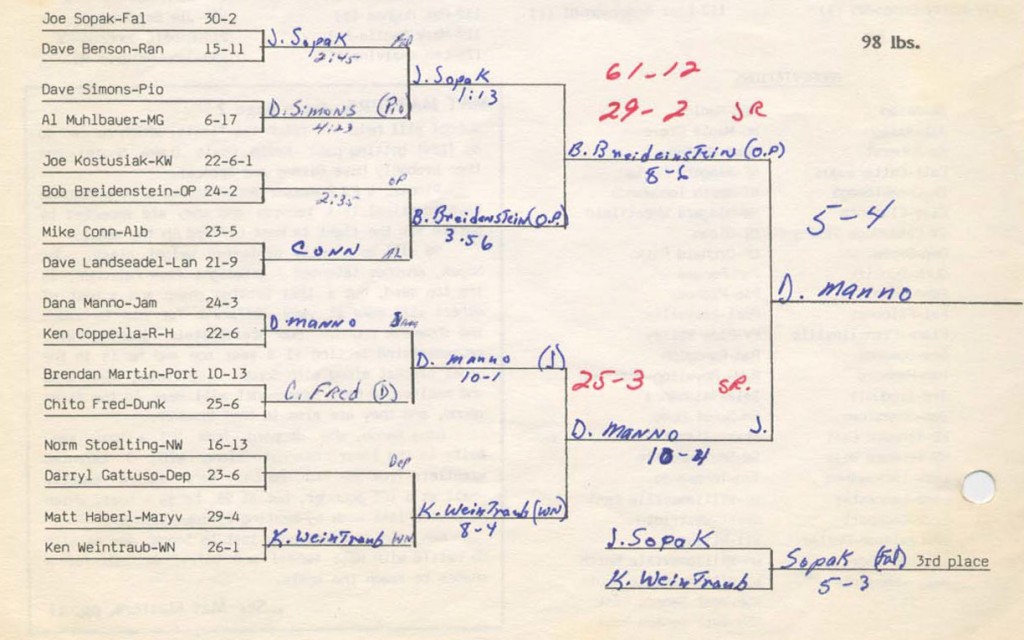 98 lbs.
Joe Sopak-Fal 30-2
Dave Benson-Ran 15-11
Dave Simons-Pio
Al Muhlbauer-MG 6-17
Joe Kostusiak-KW 22-6-1
Bob Breidenstein-OP 24-2
Mike Conn-Alb 23-5
Dave Landseadel-Lan 21-9
Dana Manno-Jam 24-3
Ken Coppella-R-H 22-6
Brendan Martin-Port 10-13
Chito Fred-Dunk 25-6
Norm Stoelting-NW 16-13
Darryl Gattuso-Dep 23-6
Matt Haberl-Maryv 29-4
Ken Weintraub-WN 26-1
J. Sopak Fal
2:45
D. Simons (Pio)
4:23
OP
2:35
Conn AL
D. Manno Jam
C. Fred (D)
Dep
K. Weintraub WN
J. Sopak
1:13
B. Breidenstein (O.P.)
3.56
D. Manno (J)
10-1
K. Weintraub (WN)
8-4
61-12
29-2 JR
B. Breideinstein (O.P)
25-3 SR.
D. Manno J.
5-4
D. Manno
J. Sopak
K. Weintraub
Sopak (Fal) 3rd place
5-3